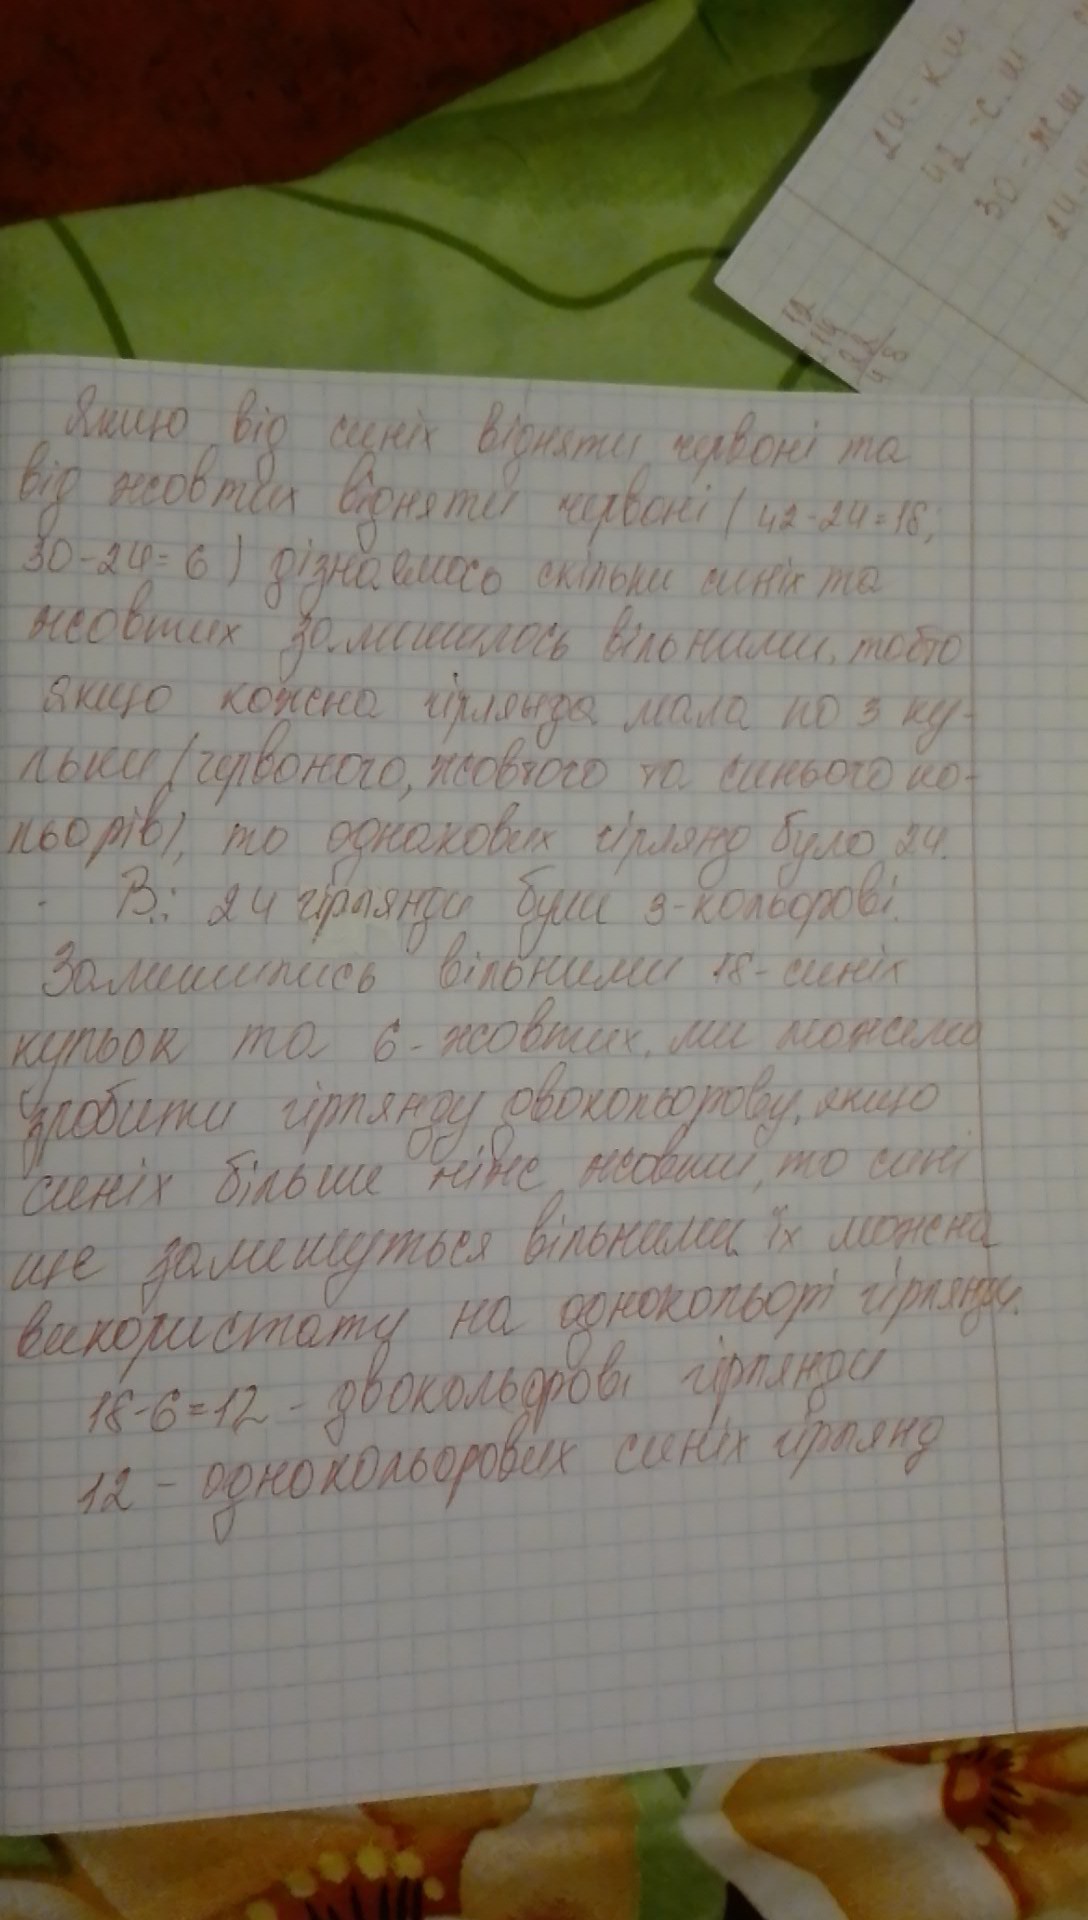 24 - к.ш
42 - с.ш
30 - ж.ш
24
12
48
Якщо від синіх відняти червоні та
від жовтих відняти червоні (42-24=18;
30-24=6) дізнаємось скільки синіх та
жовтих залишилось вільними, тобто
якщо кожна гірлянда мала по 3 ку-
льки (червоного, жовтого та синього ко-
льорів), то однакових гірлянд було 24.
В.: 24 гірлянди були 3-кольорові.
Залишились вільними 18-синіх
кульок та 6-жовтих, ми можемо
зробити гірлянду двокольорову, якщо
синіх більше ніж жовтих, то сині
ще залишуться вільними їх можна
використати на однокольорі гірлянди.
18-6=12 - двокольорові гірлянди
12 - однокольорових синіх гірлянд